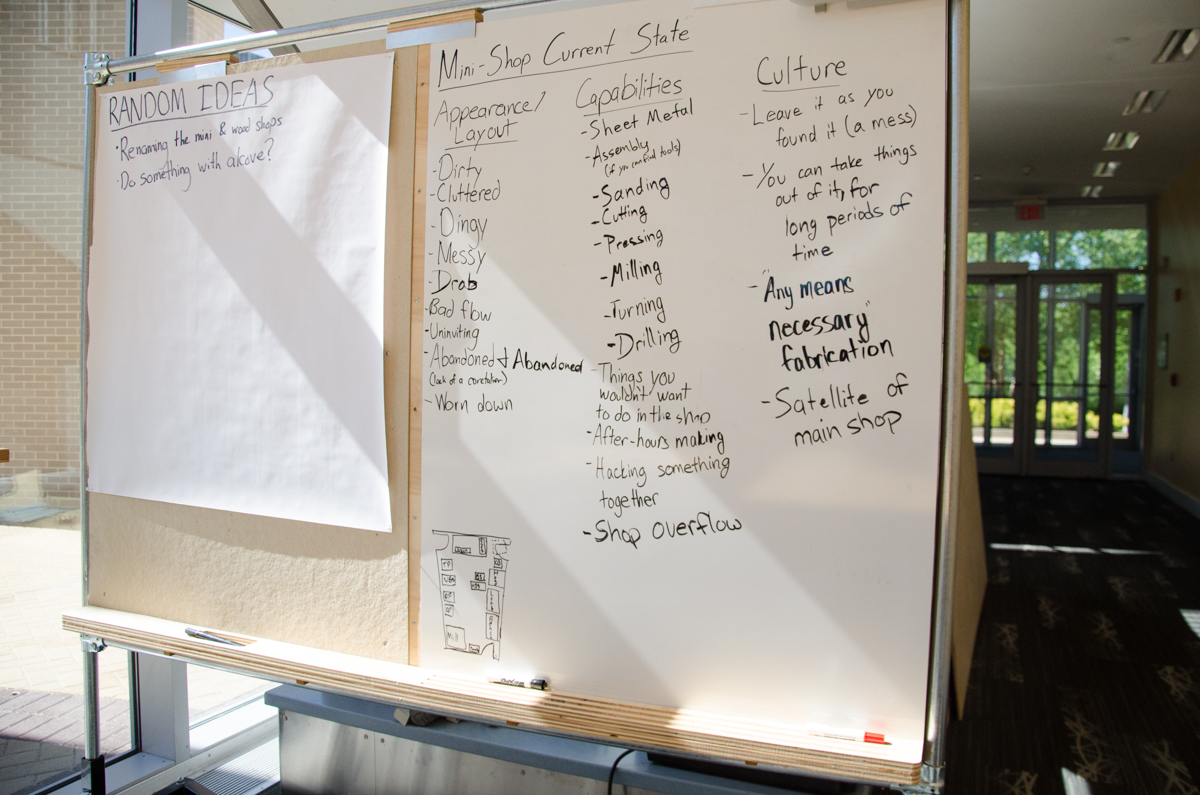 RANDOM IDEAS
·Renaming the mini & wood shops
·Do something with alcove?
Mini-Shop Current State
Appearance/
Layout
-Dirty
-Cluttered
-Dingy
-Messy
-Drab
-Bad flow
-Uninviting
-Abandoned & Abandoned
(lack of a
-Worn down
Mill
Capabilities
-Sheet Metal
-Assembly
(if you can find tools)
-Sanding
-Cutting
-Pressing
-Milling
-Turning
-Drilling
-Things you
wouldn't want
to do in the shop
-After-hours making
-Hacking something
together
-Shop overflow
Culture
-Leave it as you
found it (a mess)
-You can take things
out of it, for
long periods of
time
-"Any means
necessary"
fabrication
-Satellite of
main shop
EXIT